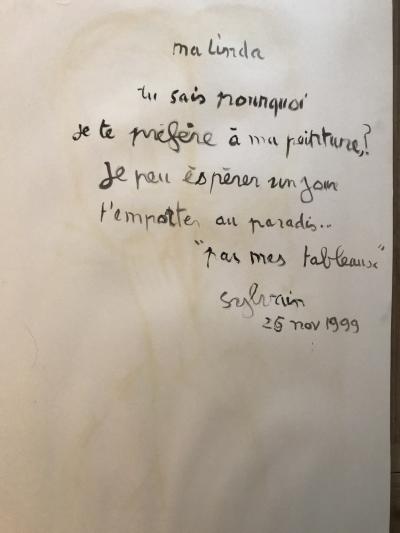 ma linda
tu sais pourquoi
je te préfère à ma peinture,?
Je peu éspérer un jour
t'emporter au paradis..
"pas mes tableaux"
Sylvain
25 nov 1999